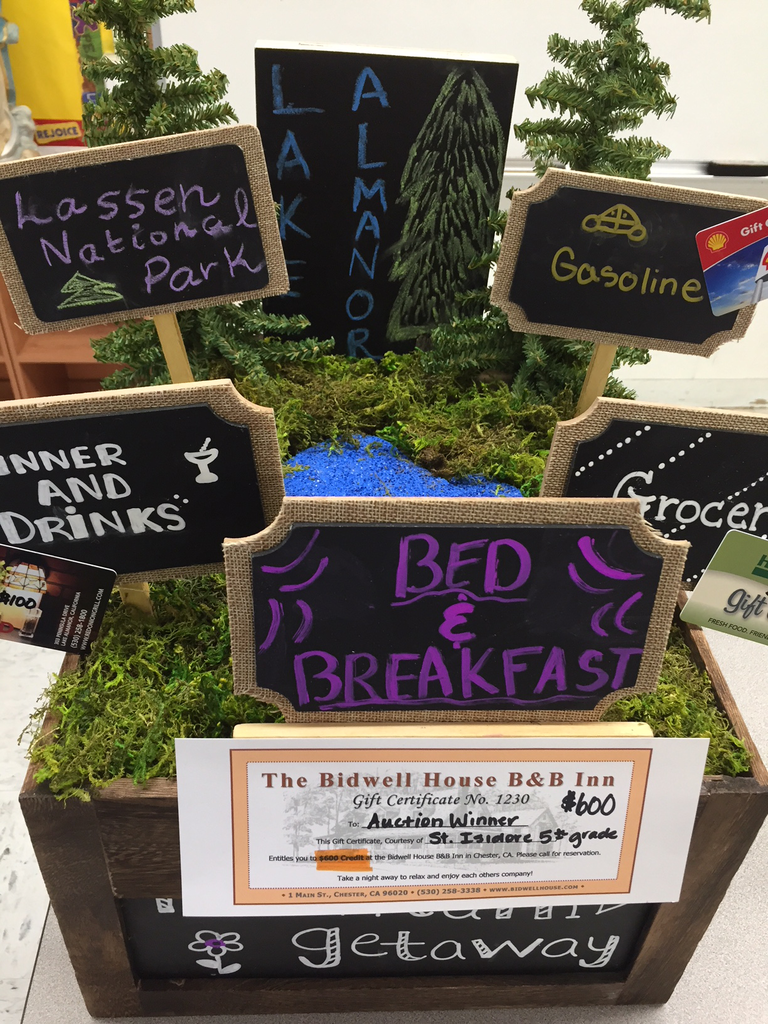 REJOICE
LAKE
ALMANOR
Lassen
National
Park
Gasoline
Gift
INNER
AND
DRINKS
Grocer
$100
LAKE ALMANOR, CALIFORNIA
(530) 258-1000
gift
FRESH FOOD. FRIEN
BED
&
BREAKFAST
The Bidwell House B&B Inn
Gift Certificate No. 1230
$600
To: Auction Winner
This Gift Certificate, Courtesy of St. Isidore 5th grade
Entitles you to $600 Credit at the Bidwell House B&B Inn in Chester, CA. Please call for reservation.
Take a night away to relax and enjoy each others company!
• 1 MAIN ST., CHESTER, CA 96020 • (530) 258-3338 • WWW.BIDWELLHOUSE.COM •
getaway